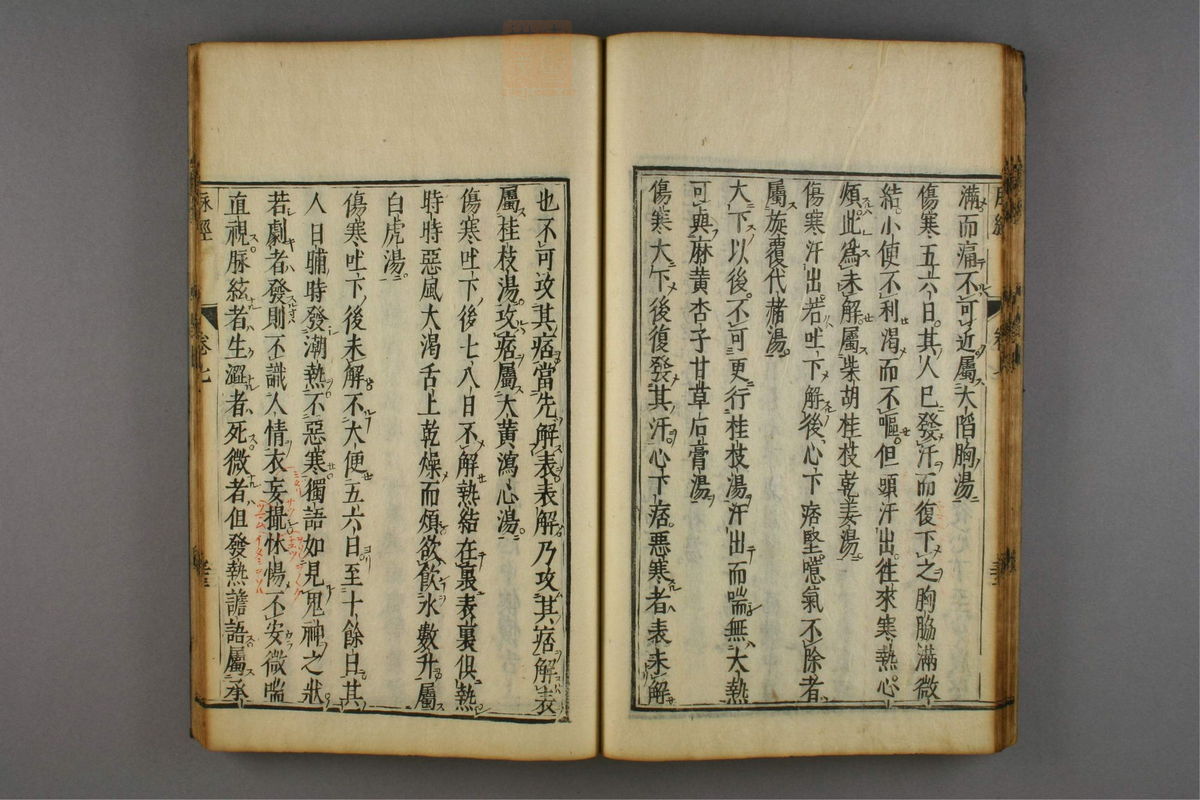 滿而痛不可近屬大陷胸湯
傷寒五六日其人已發汗而復下之胸脇滿微
結小便不利渴而不嘔但頭汗出徃來寒熱心
煩此爲未解屬柴胡桂枝乾姜湯
傷寒汗出若吐下解後心下痞堅噫氣不除者
屬旋覆代赭湯
大下以後不可更行桂枝湯汗出而喘無大熱
可與麻黃杏子甘草石膏湯
傷寒大下後復發其汗心下痞惡寒者表未解
也不可攻其痞當先解表表解乃攻其痞解表
屬桂枝湯攻痞屬大黃瀉心湯
傷寒吐下後七八日不解熱結在裏表裏俱熱
時時惡風大渴舌上乾燥而煩欲飮水數升屬
白虎湯
傷寒吐下後未解不大便五六日至十餘日其
人日晡時發潮熱不惡寒獨語如見鬼神之狀
若劇者發則不識人情衣妄撮怵惕不安微喘
直視脉絃者生濇者死微者但發熱譫語屬承
脉經
卷七